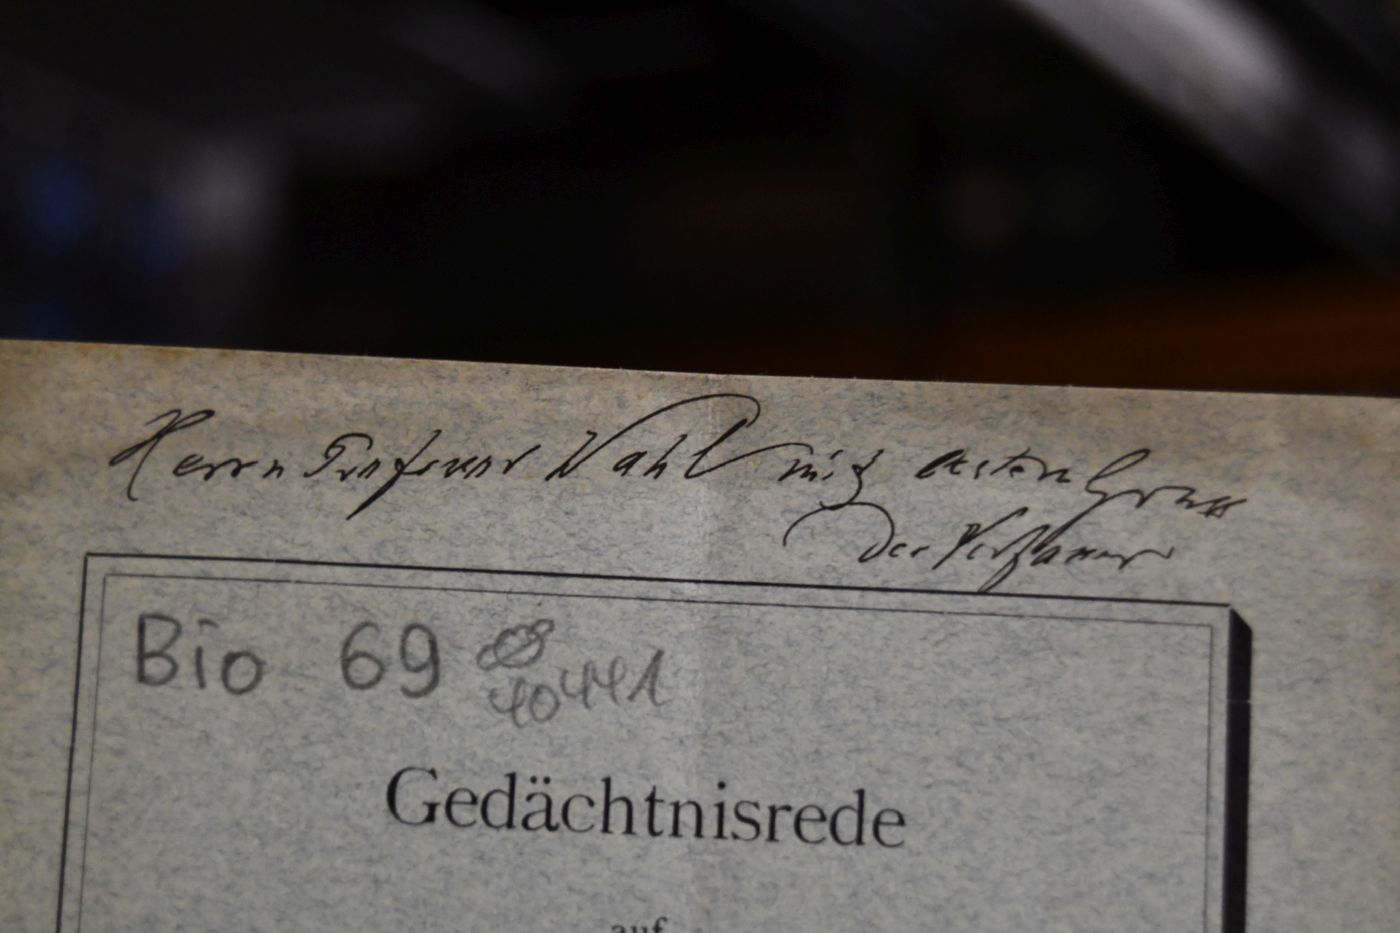 Herrn Professor Wahl mit besten Gruss
der Verfasser
Bio 69
40441
Gedächtnisrede
auf